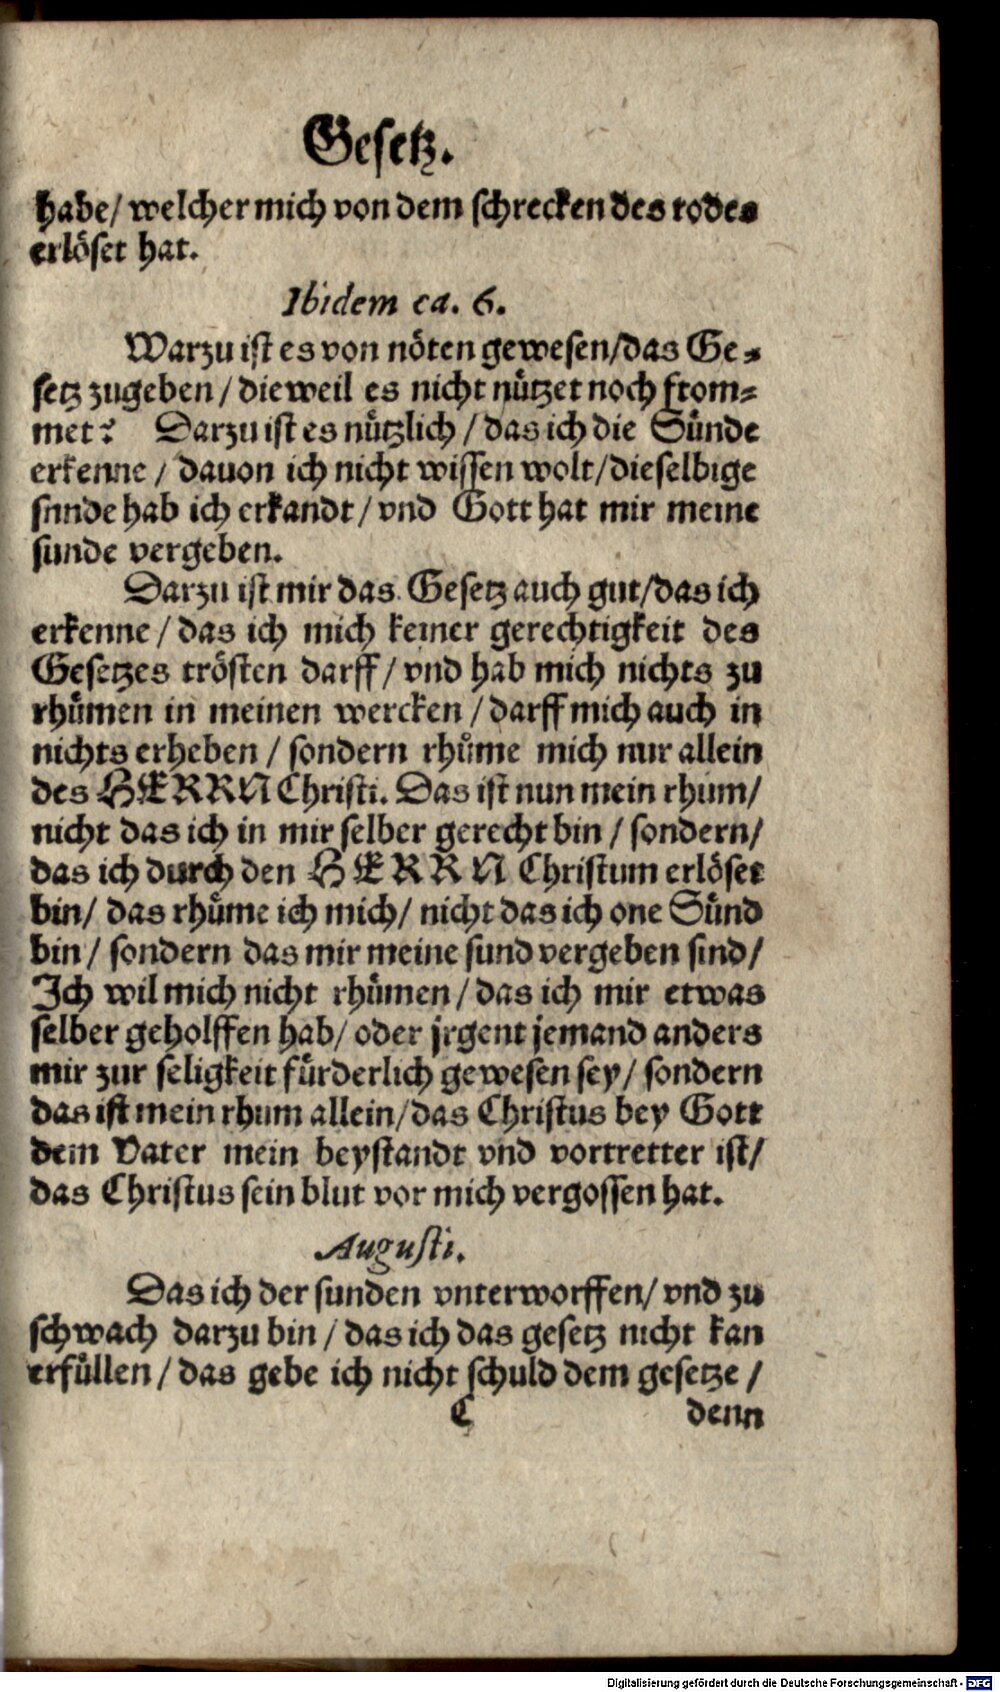 Gesetz.
habe/ welcher mich von dem schrecken des todes
erlöset hat.
Ibidem ca. 6.
Warzu ist es von nöten gewesen/das Ge-
setz zugeben / dieweil es nicht nützet noch from-
met? Darzu ist es nützlich / das ich die Sünde
erkenne / dauon ich nicht wissen wolt/dieselbige
sunde hab ich erkandt / vnd Gott hat mir meine
sunde vergeben.
Darzu ist mir das Gesetz auch gut/das ich
erkenne / das ich mich keiner gerechtigkeit des
Gesetzes trösten darff / vnd hab mich nichts zu
rhümen in meinen wercken / darff mich auch in
nichts erheben / sondern rhüme mich nur allein
des HERRN Christi. Das ist nun mein rhum/
nicht das ich in mir selber gerecht bin / sondern/
das ich durch den HERRN Christum erlöset
bin/ das rhüme ich mich/ nicht das ich one Sünd
bin / sondern das mir meine sund vergeben sind/
Ich wil mich nicht rhümen / das ich mir etwas
selber geholffen hab/ oder jrgent jemand anders
mir zur seligkeit fürderlich gewesen sey/ sondern
das ist mein rhum allein/das Christus bey Gott
dem Vater mein beystandt vnd vortretter ist/
das Christus sein blut vor mich vergossen hat.
Augusti.
Das ich der sunden vnterworffen/ vnd zu
schwach darzu bin / das ich das gesetz nicht kan
erfüllen / das gebe ich nicht schuld dem gesetze /
C denn
Digitalisierung gefördert durch die Deutsche Forschungsgemeinschaft - DFG